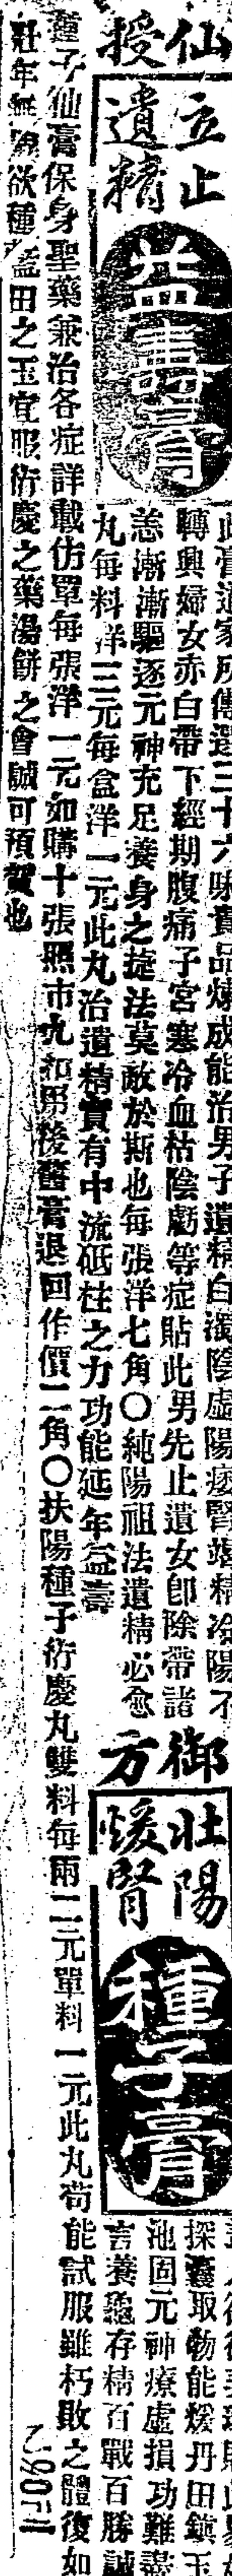 仙授
立止遺精
益壽膏
此膏道家所傳選三十六味貴品煉成能治男子遺精白濁陰虛陽痿腎竭精冷陽不
轉興婦女赤白帶下經期腹痛子宮寒冷血枯陰虧等症貼此男先止遺女卽除帶諸
恙漸漸驅逐元神充足養身之捷法莫敵於斯也每張洋七角〇純陽祖法遺精必愈
丸每料洋三元每盒洋一元此丸治遺精實有中流砥柱之力功能延年益壽
御方
壯陽煖腎
種子膏
探囊取物能煖丹田鎭玉
池固元神療虛損功難盡
言養龜存精百戰百勝誠
種子仙膏保身聖藥兼治各症詳載仿單每張洋一元如購十張照市九扣男後舊膏退回作價二角〇扶陽種子衍慶丸雙料每兩二元單料一元此丸苟能試服雖朽敗之體復如
壯年無嗣欲種藍田之玉宜服衍慶之藥湯餅之會誠可預賀也